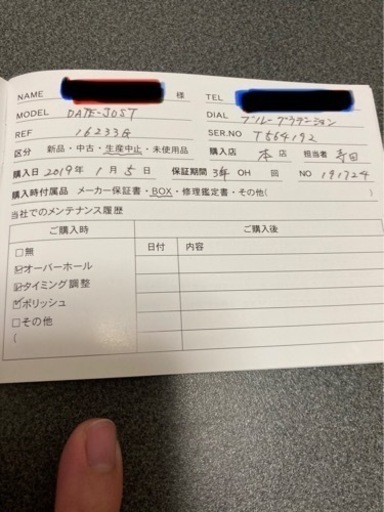 NAME 様 TEL
MODEL DATE-JUST DIAL ブルーグラデーション
REF 16233G SER.NO T564192
区分 新品・中古・生産中止・未使用品 購入店 本店 担当者
購入日 2019年 1月 5日 保証期間 3年 OH 回 NO 191724
購入時付属品 メーカー保証書・BOX・修理鑑定書・その他(
当社でのメンテナンス履歴
ご購入時 ご購入後
□無 日付 内容
☑オーバーホール
☑タイミング調整
☑ポリッシュ
□その他
(